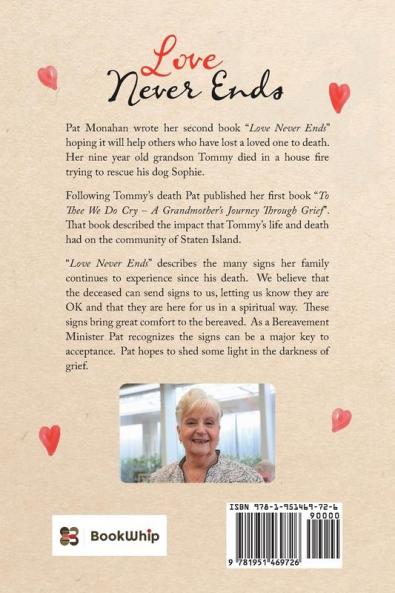 Love
Never Ends
Pat Monahan wrote her second book “Love Never Ends”
hoping it will help others who have lost a loved one to death.
Her nine year old grandson Tommy died in a house fire
trying to rescue his dog Sophie.
Following Tommy’s death Pat published her first book “To
Thee We Do Cry – A Grandmother’s Journey Through Grief”.
That book described the impact that Tommy’s life and death
had on the community of Staten Island.
“Love Never Ends” describes the many signs her family
continues to experience since his death. We believe that
the deceased can send signs to us, letting us know they are
OK and that they are here for us in a spiritual way. These
signs bring great comfort to the bereaved. As a Bereavement
Minister Pat recognizes the signs can be a major key to
acceptance. Pat hopes to shed some light in the darkness of
grief.
BookWhip
ISBN 978-1-951469-72-6
90000
9 781951 469726